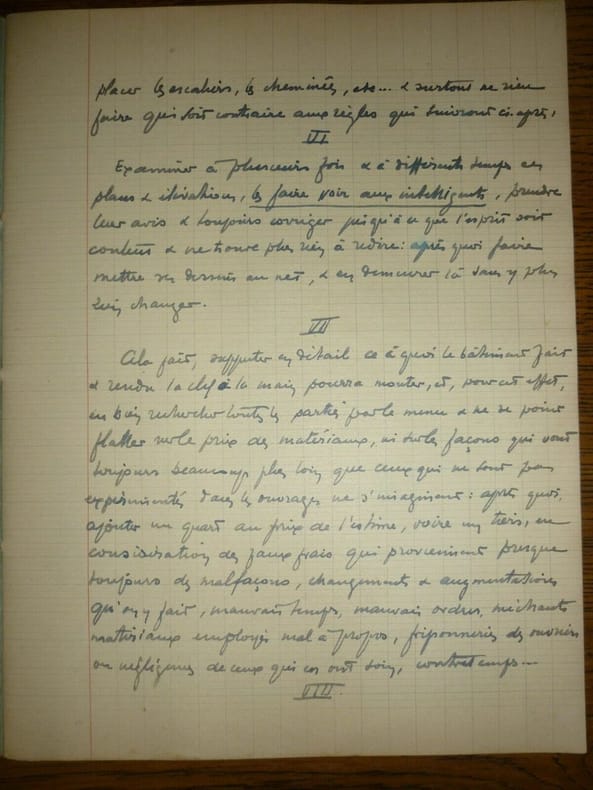 placer les escaliers, les cheminées, etc... & surtout ne rien
faire qui soit contraire aux règles qui suivront ci-après,
VI
Examiner à plusieurs fois & à différents temps ces
plans & élévations, les faire voir aux intelligents, prendre
leur avis & toujours corriger jusqu'à ce que l'esprit soit
content & ne trouve plus rien à redire : après quoi faire
mettre ses dessins au net, & en demeurer là sans y plus
rien changer.
VII
Cela fait, supputer en détail ce à quoi le bâtiment fait
& rendu la clef à la main pourra monter, et, pour cet effet,
en bien rechercher toutes les parties par le menu & ne se point
flatter sur le prix des matériaux, ni sur les façons qui vont
toujours beaucoup plus loin que ceux qui ne sont pas
expérimentés dans les ouvrages ne s'imaginent : après quoi,
ajouter un quart au prix de l'estime, voire un tiers, en
considération des faux frais qui proviennent presque
toujours des malfaçons, changements & augmentations
qu'on y fait, mauvais temps, mauvais ordres, méchants
matériaux employés mal à propos, friponneries des ouvriers
ou négligences de ceux qui en ont soin, contretemps...
VIII.